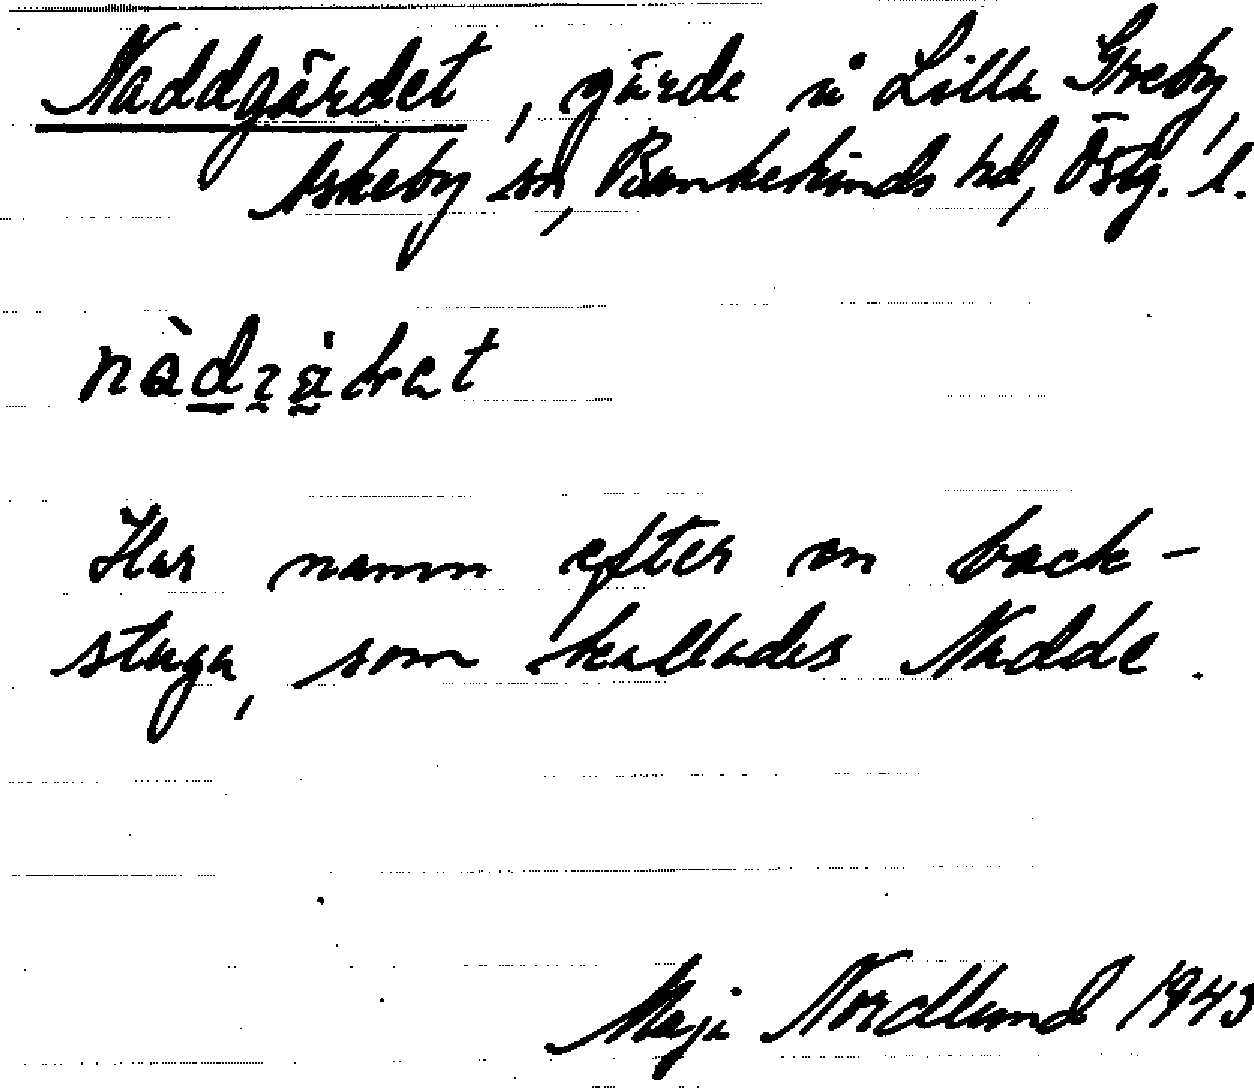 Naddgärdet, gärde å Lilla Greby,
Askeby sn, Bankekinds hd, Östg. l.
Har namn efter en back-
stuga, som kallades Nadde.
Maja Nordlund 1943